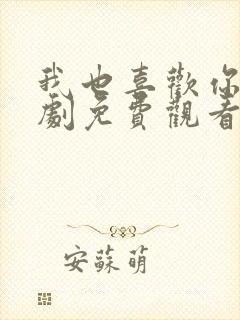 我也喜歡你
劇免費觀看
安蘇萌